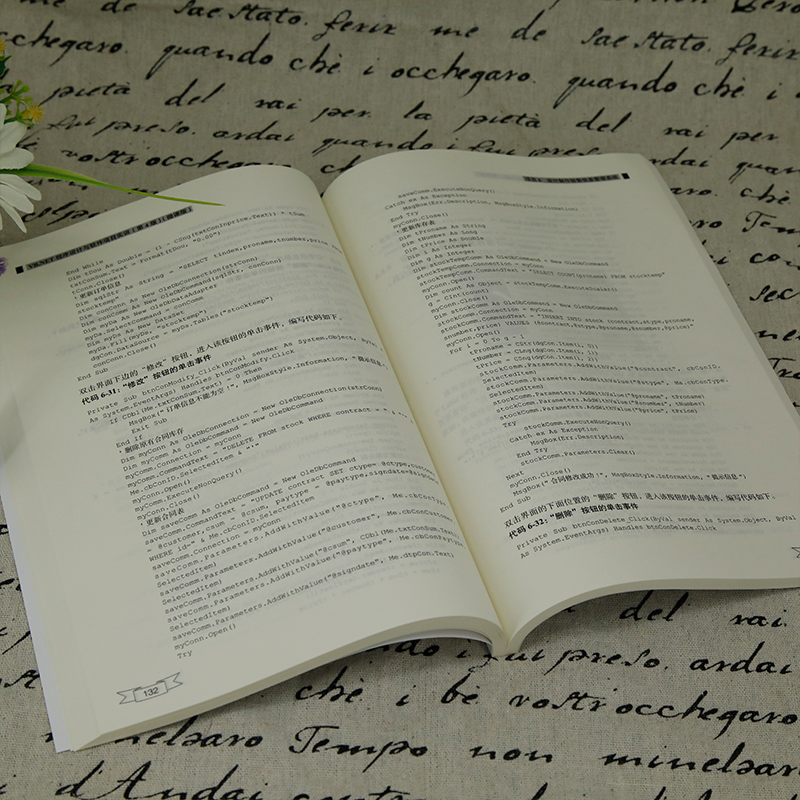 VB.NET程序设计与软件项目实训(第2版)(普通版)
End While
Dim tDou As Double = (1 - CSng(txtComInprice.Text)) * tSum
txtConSum.Text = Format(tDou, "0.00")
tConn.Close()
'更新订单信息
Dim sqlStr As String = "SELECT tindex,proname,tnumber,price
stocktemp"
Dim conConn As New OleDbConnection(strConn)
Dim conComm As New OleDbCommand(sqlStr, conConn)
Dim myDa As New OleDbDataAdapter
myDa.SelectCommand = conComm
Dim myDs As New DataSet
myDa.Fill(myDs, "stocktemp")
myDG.DataSource = myDs.Tables("stocktemp")
conConn.Close()
End Sub
双击界面下边的“修改”按钮，进入该按钮的单击事件，编写代码如下。
代码 6-31：“修改”按钮的单击事件
Private Sub btnConModify_Click(ByVal sender As System.Object, ByVal
As System.EventArgs) Handles btnConModify.Click
If CDbl(Me.txtConSum.Text) = 0 Then
MsgBox("订单信息不能为空!", MsgBoxStyle.Information, "提示信息"
Exit Sub
End If
'删除原有合同库存
Dim myConn As New OleDbConnection(strConn)
Dim myComm As New OleDbCommand
myComm.Connection = myConn
myComm.CommandText = "DELETE FROM stock WHERE contract =
Me.cbConID.SelectedItem &
myConn.Open()
myComm.ExecuteNonQuery()
myConn.Close()
'更新合同表
Dim saveComm As New OleDbCommand
saveComm.CommandText = "UPDATE contract SET ctype= @ctype,custome
= @customer, csum = @csum, paytype = @paytype,signdate=@signd
WHERE id=" & Me.cbConID.SelectedItem
saveComm.Connection = myConn
saveComm.Parameters.AddWithValue("@ctype", Me.cbConType.
SelectedItem)
saveComm.Parameters.AddWithValue("@customer", Me.cbConCustome
SelectedItem)
saveComm.Parameters.AddWithValue("@csum", CDbl(Me.txtConSum.Text))
saveComm.Parameters.AddWithValue("@paytype", Me.cbConPaytyp
SelectedItem)
saveComm.Parameters.AddWithValue("@signdate", Me.dtpCon.Text)
myConn.Open()
Try
132
saveComm.ExecuteNonQuery()
Catch ex As Exception
MsgBox(Err.Description, MsgBoxStyle.Information)
End Try
myConn.Close()
Dim tProname As String
Dim tNumber As Long
Dim tPrice As Double
Dim i As Integer
Dim g As Integer
Dim stockTempComm As New OleDbCommand
stockTempComm.Connection = myConn
stockTempComm.CommandText = "SELECT COUNT(proname) FROM stocktemp"
myConn.Open()
Dim count As Object = stockTempComm.ExecuteScalar()
g = CInt(count)
myConn.Close()
Dim stockComm As New OleDbCommand
stockComm.Connection = myConn
stockComm.CommandText = "INSERT INTO stock (contract,stype,proname,
snumber,price) VALUES (@contract,@stype,@proname,@snumber,@price)"
myConn.Open()
For i = 0 To g - 1
tProname = CStr(dgCon.Item(i, 0))
tNumber = CLng(dgCon.Item(i, 1))
tPrice = CSng(dgCon.Item(i, 2))
stockComm.Parameters.AddWithValue("@contract", cbConID.
SelectedItem)
stockComm.Parameters.AddWithValue("@stype", Me.cbConType.
SelectedItem)
stockComm.Parameters.AddWithValue("@proname", tProname)
stockComm.Parameters.AddWithValue("@snumber", tNumber)
stockComm.Parameters.AddWithValue("@price", tPrice)
Try
stockComm.ExecuteNonQuery()
Catch ex As Exception
MsgBox(Err.Description)
End Try
stockComm.Parameters.Clear()
Next
myConn.Close()
MsgBox("合同修改成功!", MsgBoxStyle.Information, "提示信息")
End Sub
双击界面的下面位置的“删除”按钮，进入该按钮的单击事件，编写代码如下。
代码 6-32：“删除”按钮的单击事件
Private Sub btnConDelete_Click(ByVal sender As System.Object, ByVal
As System.EventArgs) Handles btnConDelete.Click
ferir me de saestato. ferir
occhegaro. quando chè i occhegaro. quando chè i
pietà del rai per la pietà del rai per
i fui preso. ardai quando i fui preso. ardai
bè vostri occhegaro
Tempo
del rai
i fui preso. ardai
chè i bè vostri occhegaro
minelsaro Tempo non minelsaro
d'Andai contro